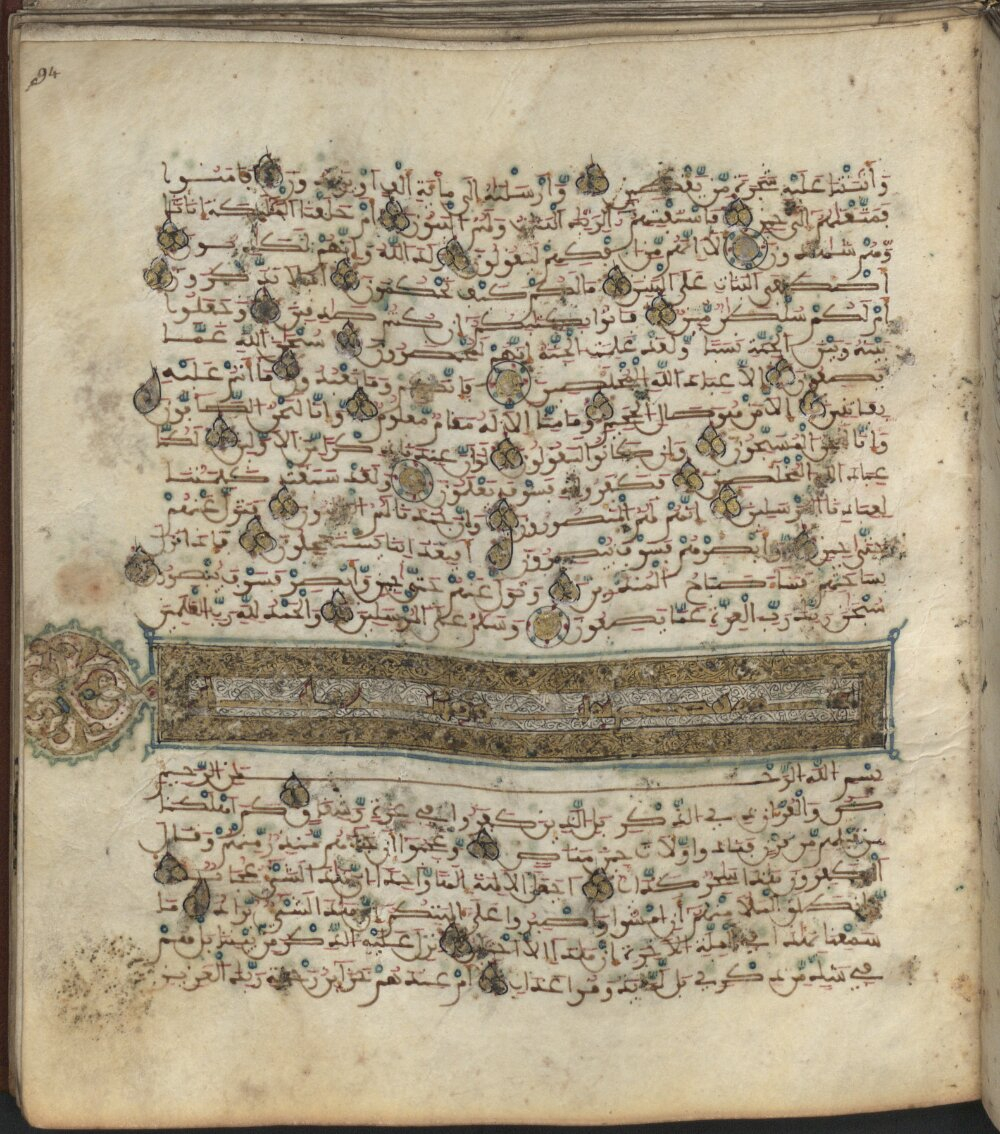 94
وأنبتنا عليه شجرة من يقطين وأرسلنه إلى مائة ألف أو يزيدون فامنوا
فمتعنهم إلى حين فاستفتهم ألربك البنات ولهم البنون أم خلقنا الملئكة إناثا
وهم شهدون ألا إنهم من إفكهم ليقولون ولد الله وإنهم لكذبون
أصطفى البنات على البنين مالكم كيف تحكمون أفلا تذكرون
أم لكم سلطن مبين فأتوا بكتبكم إن كنتم صدقين وجعلوا
بينه وبين الجنة نسبا ولقد علمت الجنة إنهم لمحضرون سبحن الله عما
يصفون إلا عباد الله المخلصين فإنكم وما تعبدون ما أنتم عليه
بفتنين إلا من هو صال الجحيم وما منا إلا له مقام معلوم وإنا لنحن الصافون
وإنا لنحن المسبحون وإن كانوا ليقولون لو أن عندنا ذكرا من الأولين لكنا
عباد الله المخلصين فكفروا به فسوف يعلمون ولقد سبقت كلمتنا
لعبادنا المرسلين إنهم لهم المنصورون وإن جندنا لهم الغلبون فتول عنهم
حتى حين وأبصرهم فسوف يبصرون أفبعذابنا يستعجلون فإذا نزل
بساحتهم فساء صباح المنذرين وتول عنهم حتى حين وأبصر فسوف يبصرون
سبحن ربك رب العزة عما يصفون وسلم على المرسلين والحمد لله رب العلمين
بسم الله الرحمن الرحيم
ص والقرءان ذي الذكر بل الذين كفروا في عزة وشقاق كم أهلكنا
من قبلهم من قرن فنادوا ولات حين مناص وعجبوا أن جاءهم منذر منهم وقال
الكفرون هذا سحر كذاب أجعل الالهة إلها واحدا إن هذا لشيء عجاب
وانطلق الملأ منهم أن امشوا واصبروا على ءالهتكم إن هذا لشيء يراد ما
سمعنا بهذا في الملة الاخرة إن هذا إلا اختلق أنزل عليه الذكر من بيننا بل هم
في شك من ذكري بل لما يذوقوا عذاب أم عندهم خزائن رحمة ربك العزيز